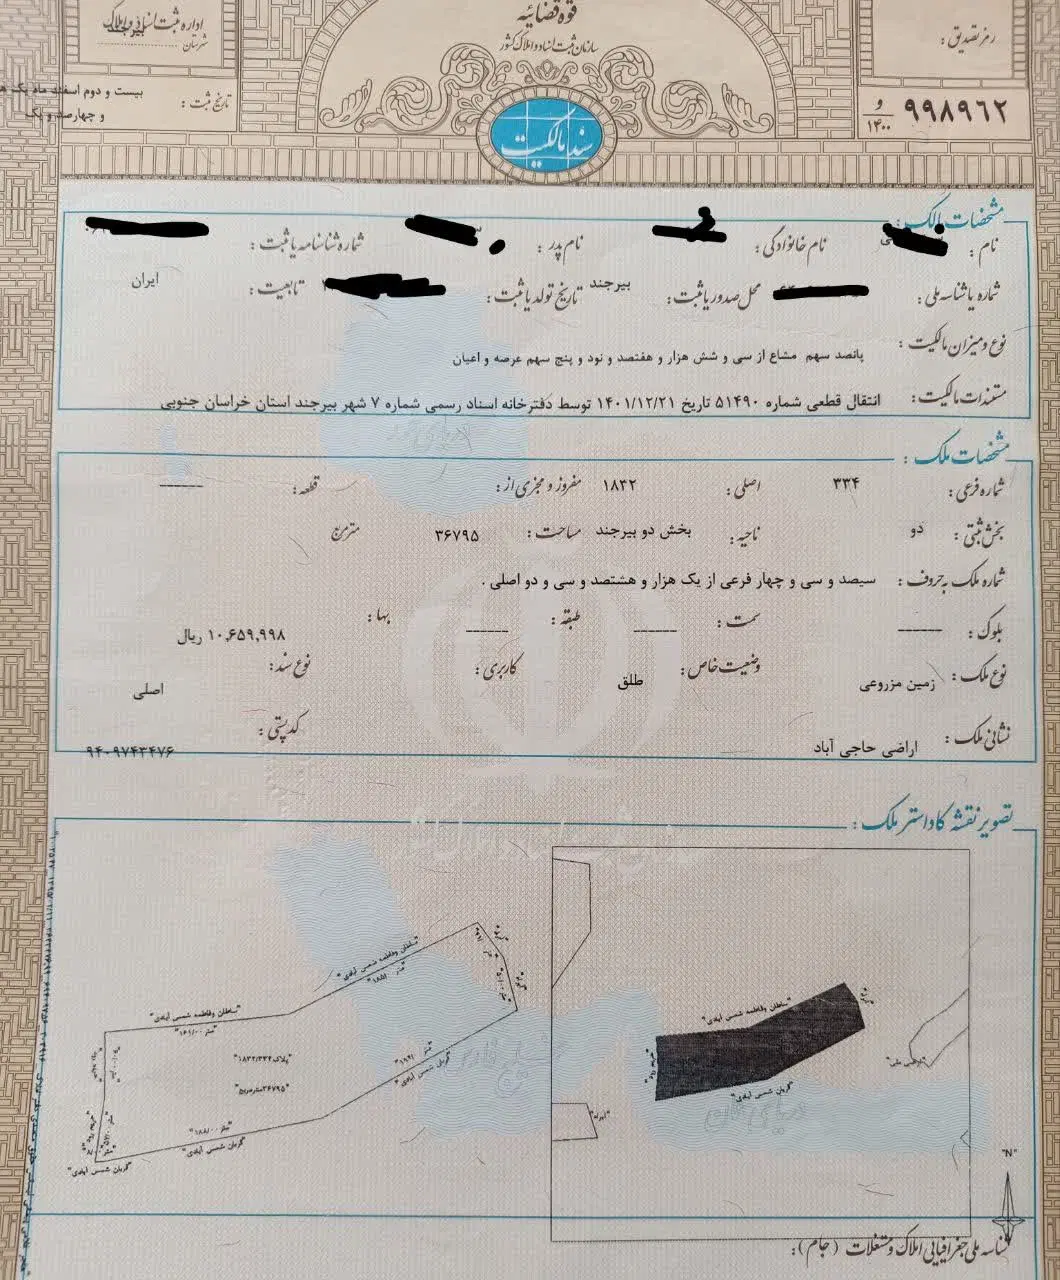 قوه قضائیه
سازمان ثبت اسناد و املاک کشور
اداره ثبت اسناد و املاک
شهرستان بیرجند
رمز تصدیق :
تاریخ ثبت : بیست و دوم اسفند ماه یک
و چهارصد و یک
۹۹۸۹۶۲ و ۱۴۰۰
سند مالکیت
مشخصات مالک :
نام : نام خانوادگی : نام پدر : شماره شناسنامه یا ثبت :
شماره یا شناسه ملی : محل صدور یا ثبت : بیرجند تاریخ تولد یا ثبت : تابعیت : ایران
نوع و میزان مالکیت : پانصد سهم مشاع از سی و شش هزار و هفتصد و نود و پنج سهم عرصه و اعیان
مستندات مالکیت : انتقال قطعی شماره ۵۱۴۹۰ تاریخ ۱۴۰۱/۱۲/۲۱ توسط دفترخانه اسناد رسمی شماره ۷ شهر بیرجند استان خراسان جنوبی
مشخصات ملک :
شماره فرعی : ۳۳۴ اصلی : ۱۸۳۲ مفروز و مجزی از : قطعه : ----
بخش ثبتی : دو ناحیه : بخش دو بیرجند مساحت : ۳۶۷۹۵ مترمربع
شماره ملک به حروف : سیصد و سی و چهار فرعی از یک هزار و هشتصد و سی و دو اصلی .
بلوک : ---- سمت : ---- طبقه : ---- بها : ۱۰,۶۵۹,۹۹۸ ریال
نوع ملک : زمین مزروعی وضعیت خاص : طلق کاربری : نوع سند : اصلی
نشانی ملک : اراضی حاجی آباد کد پستی : ۹۴۰۹۷۴۳۴۷۶
تصویر نقشه کاداستر ملک :
"سلطان وفاطمه شمس آبادی"
"سلطان وفاطمه شمس آبادی"
"۱۶۱/۰۰ متر"
"پلاک ۱۸۳۲/۳۳۴"
"۳۶۷۹۵مترمربع"
"گرمان شمس آبادی"
"۱۸۸/۰۰ متر"
"گرمان شمس آبادی"
"گرمان شمس آبادی"
"سلطان وفاطمه شمس آبادی"
"گرمان شمس آبادی"
"N"
شناسه ملی جغرافیایی املاک و مستغلات (جام) :